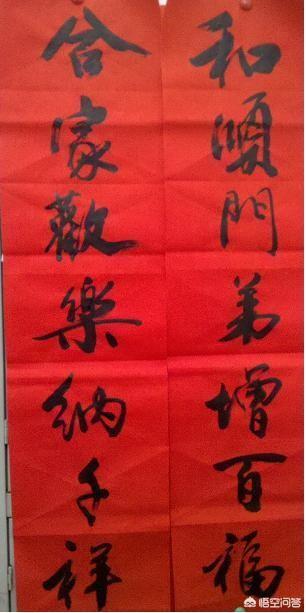 和順門弟增百福
合家歡樂納千祥
悟空问答